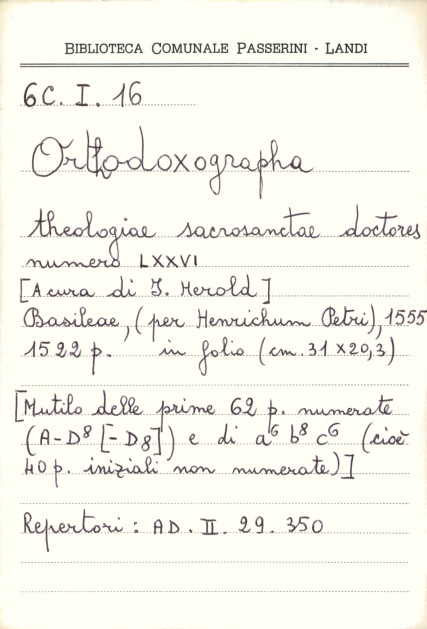 BIBLIOTECA COMUNALE PASSERINI - LANDI
6C. I. 16
Orthodoxographa
theologiae sacrosanctae doctores
numero LXXVI
[A cura di J. Herold]
Basileae, (per Henrichum Petri), 1555
1522 p. in folio (cm. 31 x 20,3)
[Mutilo delle prime 62 p. numerate
(A-D⁸ [-D8]) e di a⁶ b⁸ c⁶ (cioè
40 p. iniziali non numerate)]
Repertori: AD. II. 29. 350